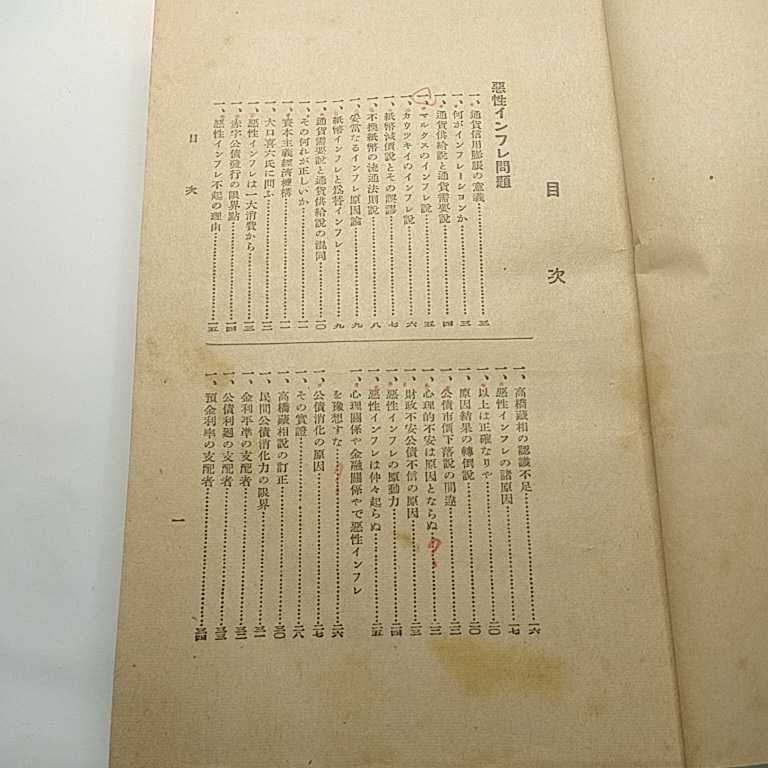 目次
惡性インフレ問題
一、通貨信用膨脹の意義…………三
一、何がインフレーションか…………三
一、通貨供給說と通貨需要說…………四
一、マルクスのインフレ說…………五
一、カウツキイのインフレ說…………六
一、紙幣減價說とその誤謬…………七
一、不換紙幣の流通法則說…………八
一、妥當なるインフレ原因論…………九
一、紙幣インフレと爲替インフレ…………九
一、通貨需要說と通貨供給說の混同…………一〇
一、その何れが正しいか…………一一
一、資本主義經濟機構…………一一
一、大口喜六氏に問ふ…………一二
一、惡性インフレは一大消費から…………一三
一、赤字公債發行の限界點…………一四
一、惡性インフレ不起の理由…………一五
一、高橋藏相の認識不足…………一六
一、惡性インフレの諸原因…………一七
一、以上は正確なりや…………二〇
一、原因結果の轉倒說…………二〇
一、公債市價下落說の間違…………二二
一、心理的不安は原因とならぬ…………二二
一、財政不安公債不信の原因…………二三
一、惡性インフレの原動力…………二四
一、惡性インフレは仲々起らぬ…………二五
一、心理關係や金融關係やで惡性インフレ
を豫想すな…………二六
一、公債消化の原因…………二七
一、その實證…………二八
一、高橋藏相說の訂正…………三〇
一、民間公債消化力の限界…………三一
一、金利平準の支配者…………三二
一、公債利廻の支配者…………三三
一、預金利率の支配者…………三四
目次
一